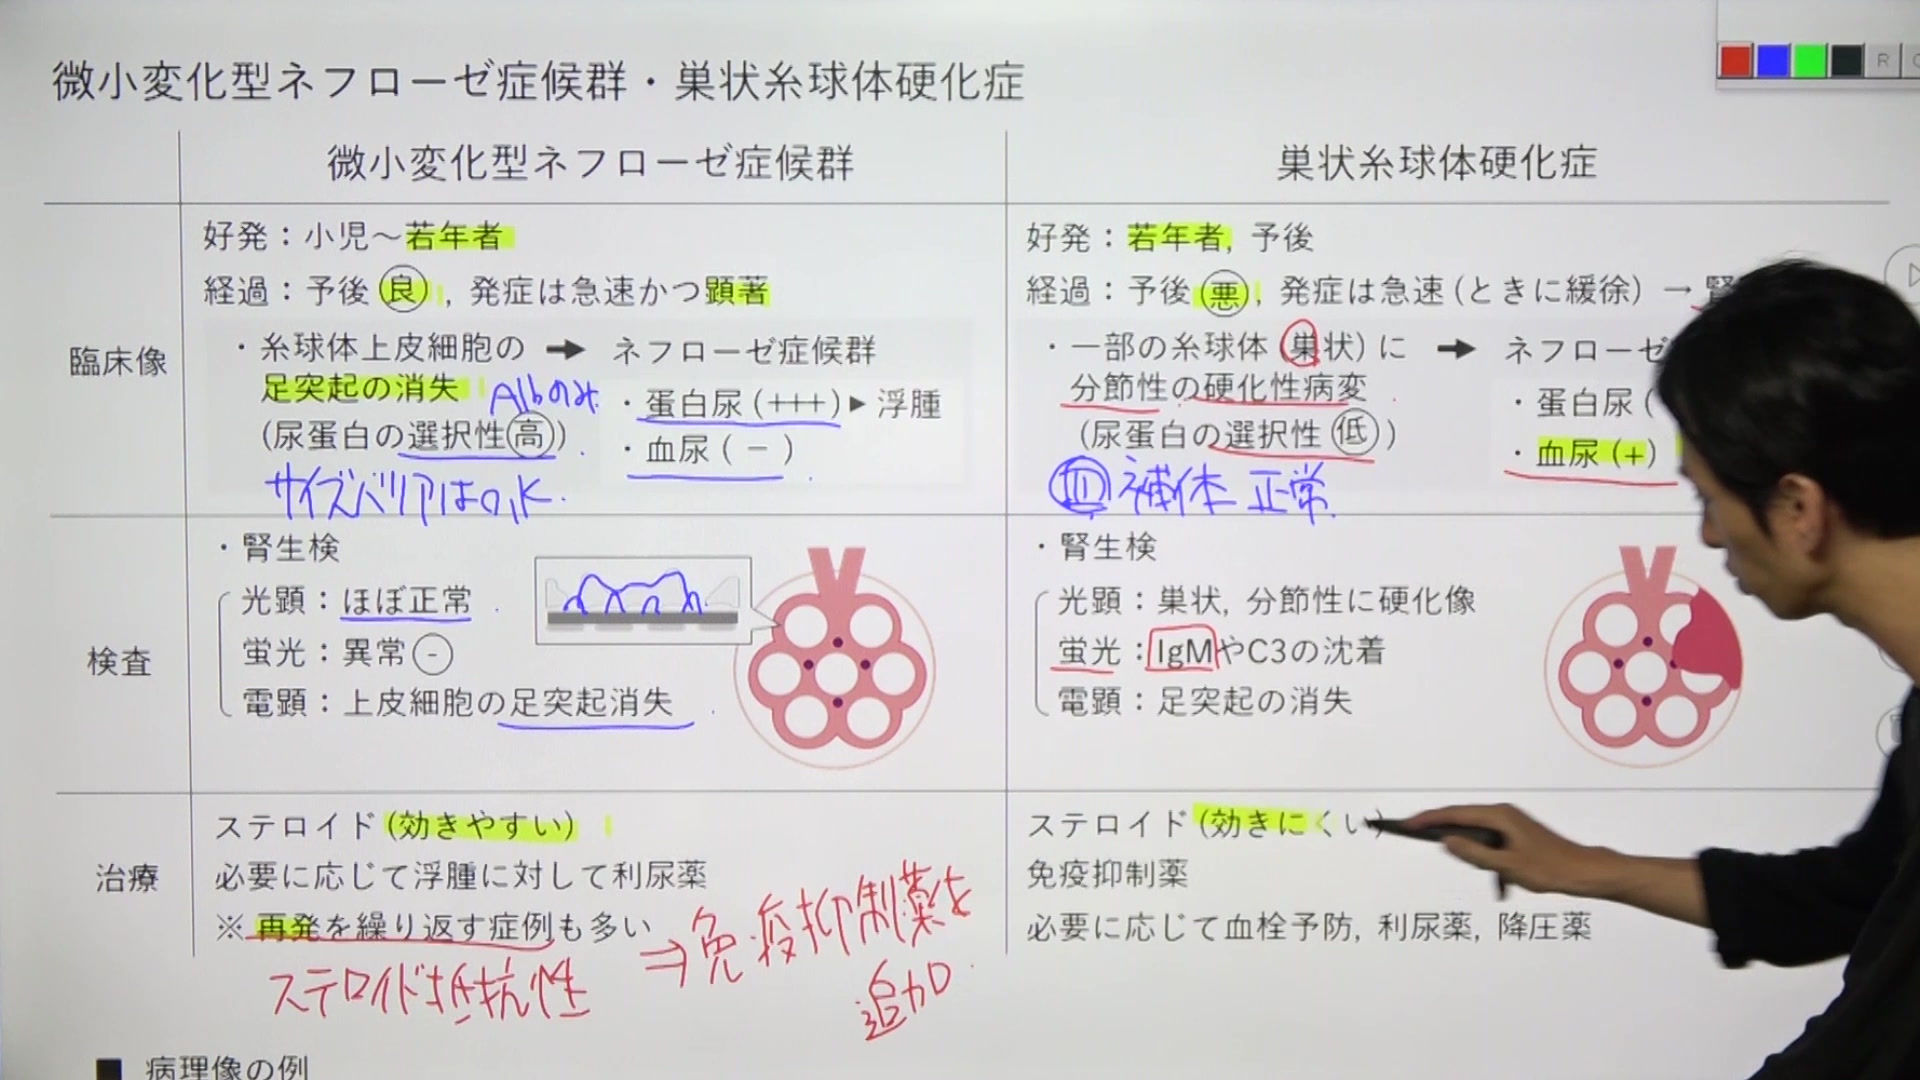 微小変化型ネフローゼ症候群・巣状糸球体硬化症
微小変化型ネフローゼ症候群
巣状糸球体硬化症
臨床像
好発：小児〜若年者
経過：予後 良 , 発症は急速かつ顕著
・糸球体上皮細胞の ➡ ネフローゼ症候群
足突起の消失 Albのみ
・蛋白尿 (+++) ▶ 浮腫
(尿蛋白の選択性 高)
・血尿 ( − )
サイズバリアはO.K.
好発：若年者, 予後
経過：予後 悪 , 発症は急速 (ときに緩徐) → 腎
・一部の糸球体 (巣状) に ➡ ネフローゼ
分節性の硬化性病変
・蛋白尿 (
(尿蛋白の選択性 低 )
・血尿 (+)
血 補体 正常
検査
・腎生検
光顕：ほぼ正常
蛍光：異常 -
電顕：上皮細胞の足突起消失
・腎生検
光顕：巣状, 分節性に硬化像
蛍光：IgMやC3の沈着
電顕：足突起の消失
治療
ステロイド (効きやすい)
必要に応じて浮腫に対して利尿薬
※ 再発を繰り返す症例も多い
ステロイド抵抗性
⇒ 免疫抑制薬を
追加
ステロイド (効きにくい)
免疫抑制薬
必要に応じて血栓予防, 利尿薬, 降圧薬
■ 病理像の例
R